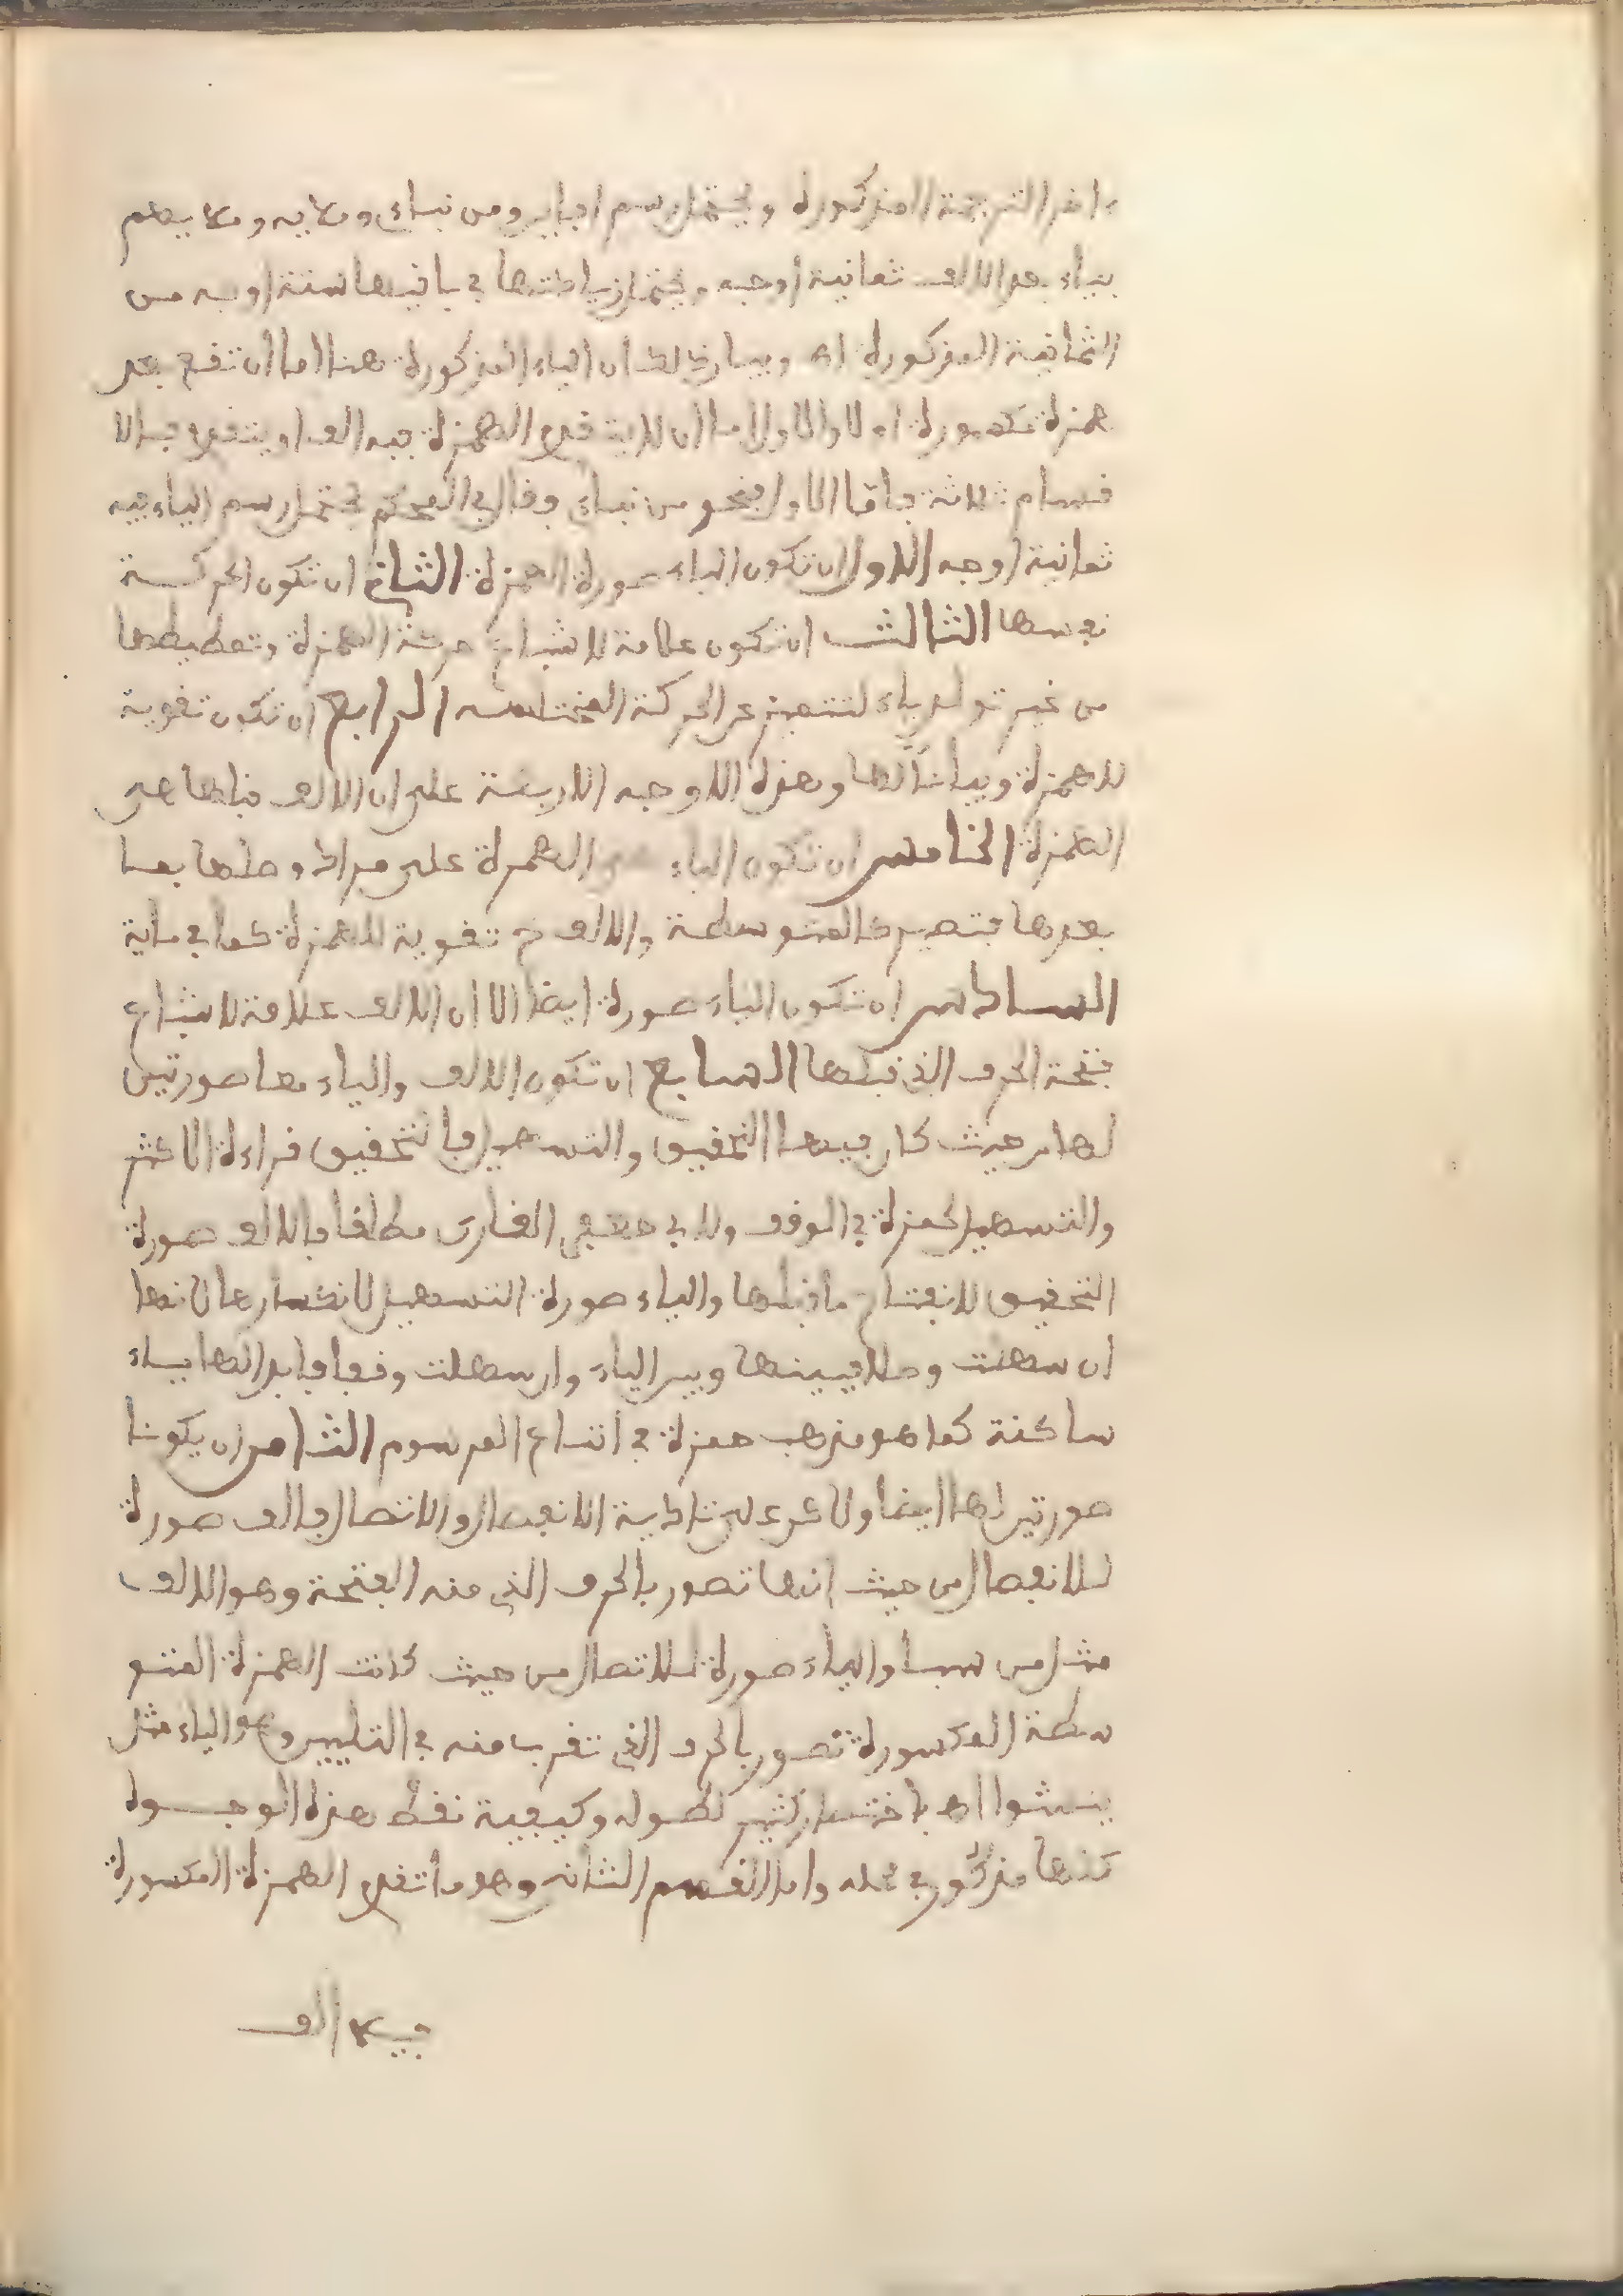 ءاخر الترجمة المذكورة ويحتمل رسم افإين ومن نبإى وملإيه وملإيهم
بياء بعد الالف ثمانية أوجه ويحتمل زيادتها في باقيها ستة اوجه من
الثمانية المذكورة اه وبيان ذلك ان الياء المذكورة هنا اما أن تقع بعد
همزة مكسورة او لا والاول اما ان لا يتقدم الهمزة فيه الف او يتقدم فالا
قسام ثلاثة فاما الاول فنحو من نبإى وقال في المحكم يحتمل رسم الياء فيه
ثمانية اوجه الاول ان تكون الياء صورة الهمزة الثاني ان تكون الحركة
نفسها الثالث ان تكون علامة لاشباع حركة الهمزة وتمطيطها
من غير تولد ياء لتتميز عن الحركة المختلسه الرابع ان تكون تقوية
للهمزة وبيانا لها وهذه الاوجه الاربعة على ان الالف قبلها هى
الهمزة الخامس ان تكون الياء هى الهمزة على مراد وصلها بما
بعدها فتصير كالمتوسطة والالف ح تقوية للهمزة كما في ماية
السادس ان تكون الياء صورة ايضا الا ان الالف علامة لاشباع
فتحة الحرف الذي قبلها السابع ان تكون الالف والياء معا صورتين
لها من حيث كان فيها التحقيق والتسهيل فالتحقيق قراءة الاكثر
والتسهيل لحمزة في الوقف ولابي جعفر القارى مطلقا فالالف صورة
التحقيق لانفتاح ما قبلها والياء صورة التسهيل لانكسارها لانها
ان سهلت وصلا فبينها وبين الياء وان سهلت وقفا فابدالها ياء
ساكنة كما هو مذهب حمزة في اتباع المرسوم الثامن ان يكونا
صورتين لها ايضا ولاكن على تادية الانفصال والاتصال فالف صورة
للانفصال من حيث انها تصور بالحرف الذي منه الفتحة وهو الالف
مثل من سبإ والياء صورة للاتصال من حيث كانت الهمزة المتو
سطة المكسورة تصور بالحرف الذي تقرب منه في التليين وهو الياء مثل
يئسوا اه باختصار كثير لطوله وكيفية نقط هذه الوجوه
كلها مذكور في محله واما القسم الثانى وهو ما تقدم الهمزة المكسورة
فيه الف